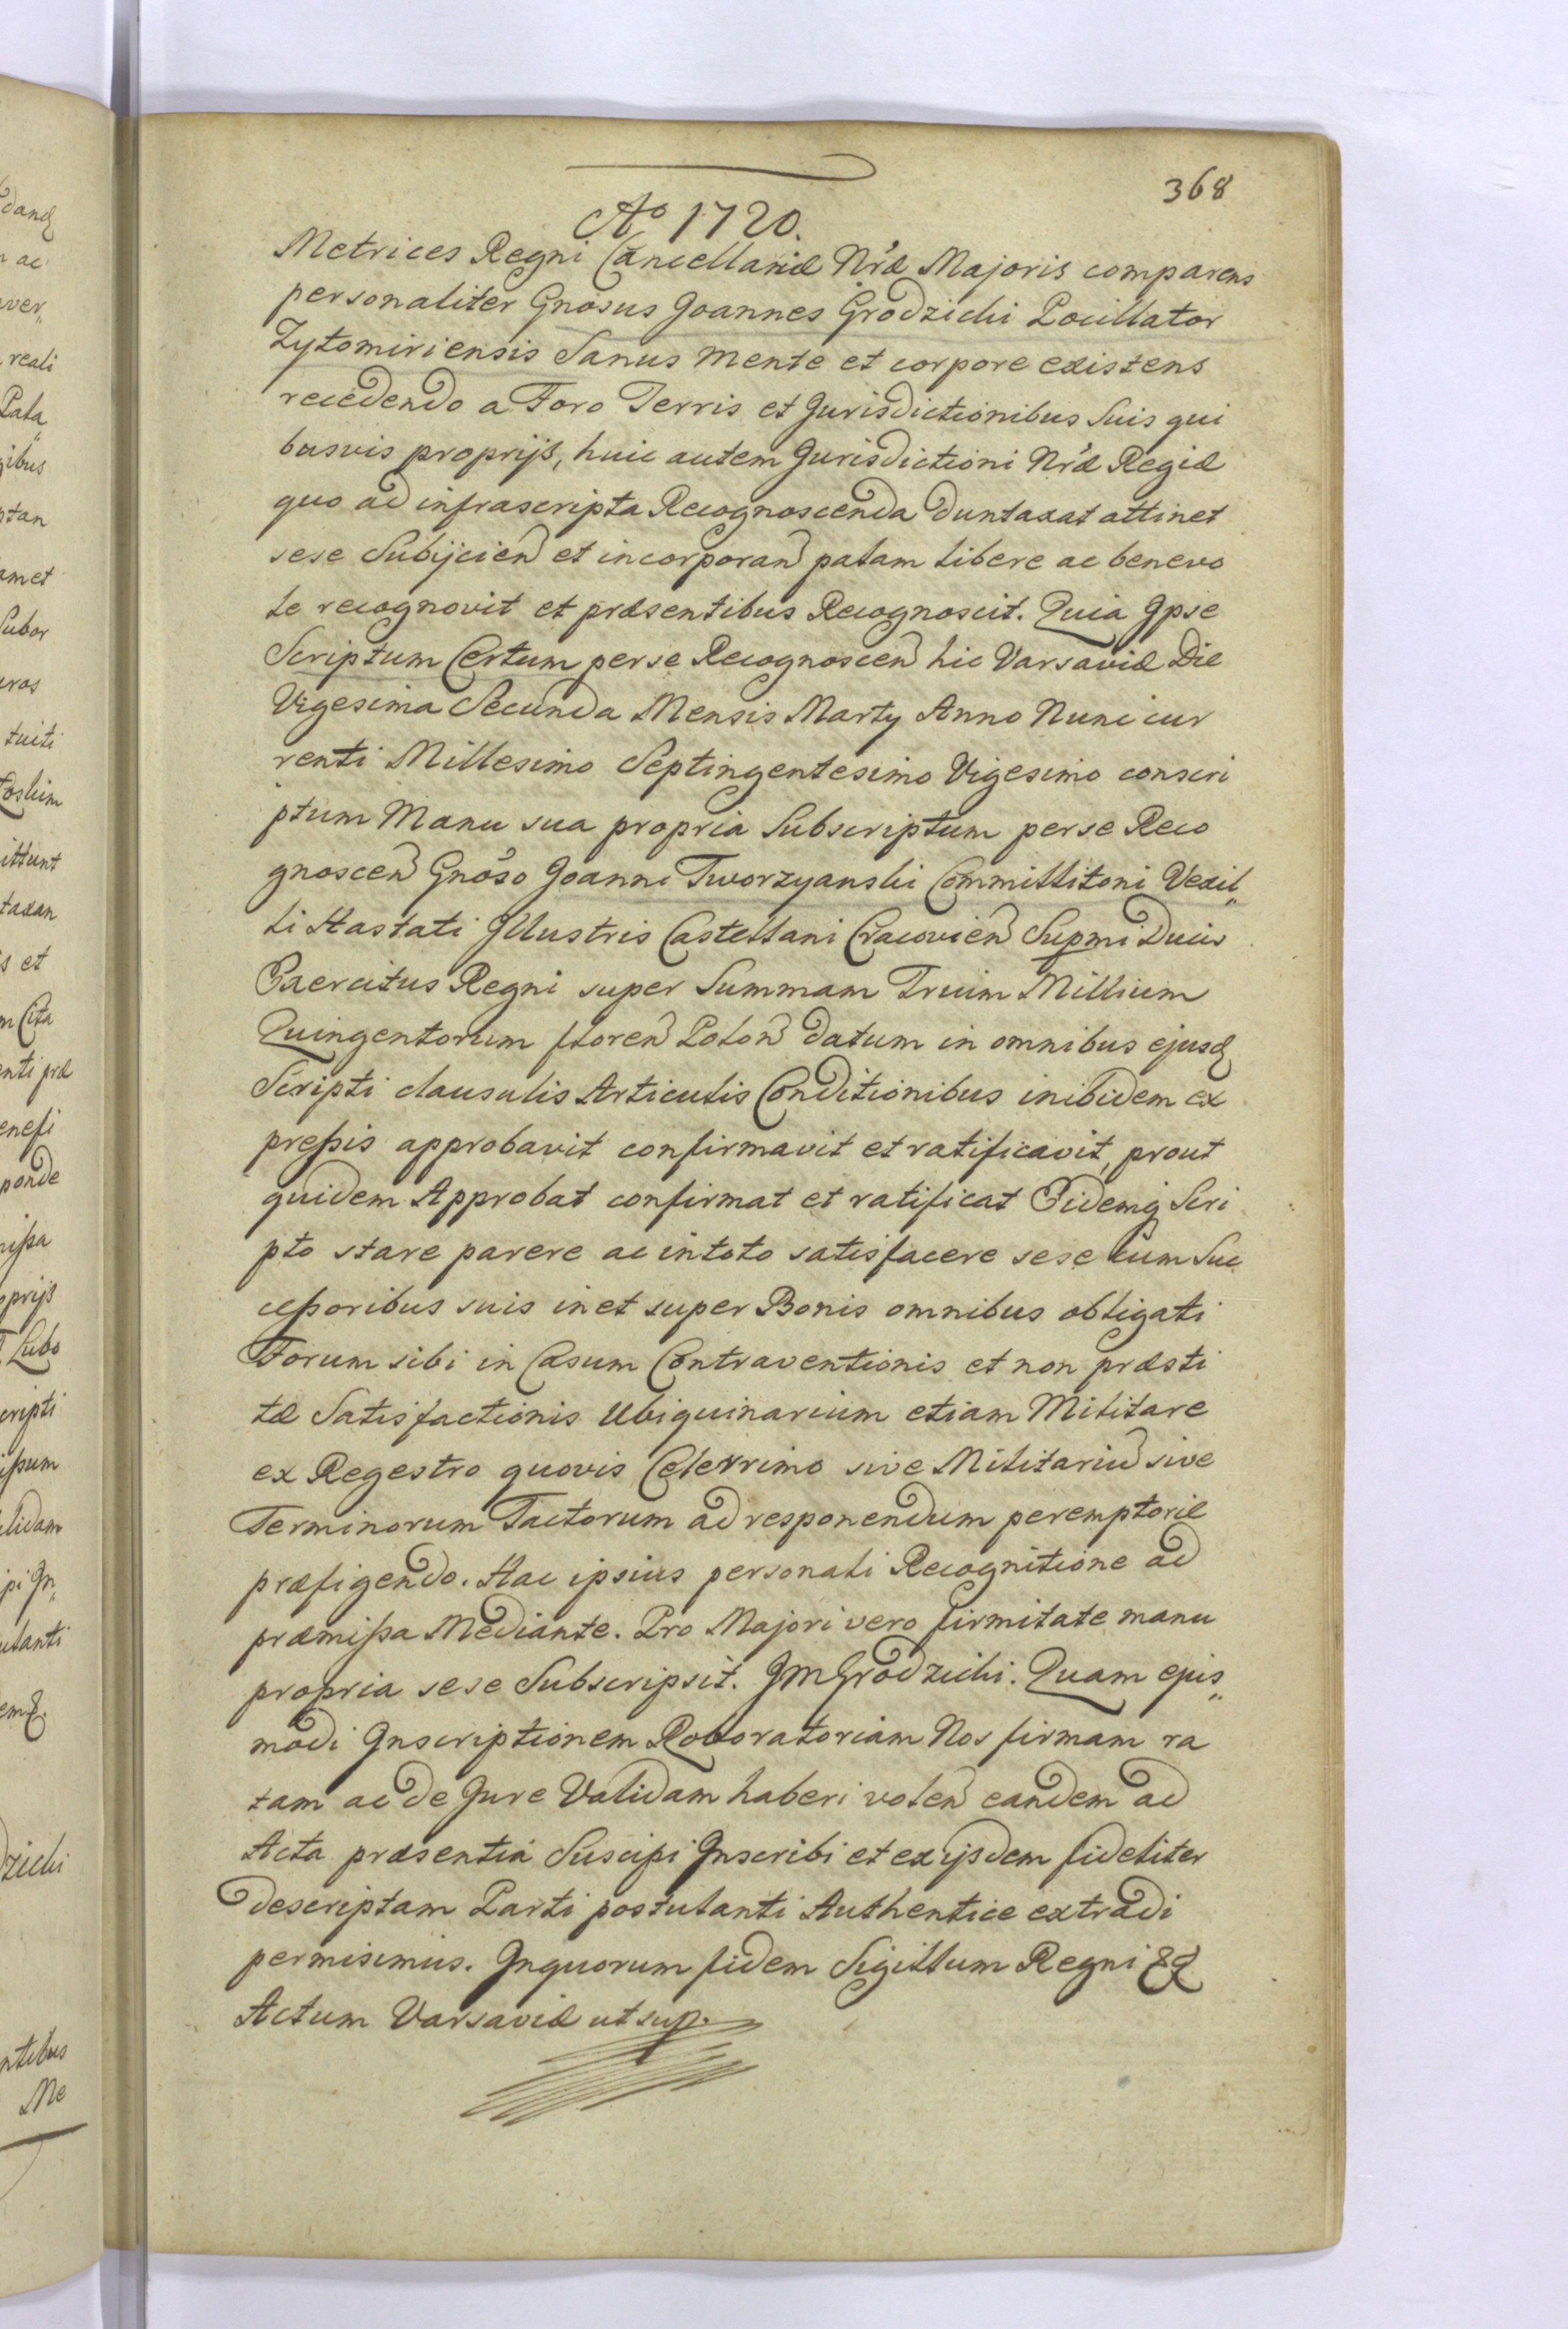 368
Aº 1720.
Metrices Regni Cancellariæ Nr̃æ Majoris comparens
personaliter Gnosus Joannes Grodzicki Pocillator
Zytomiriensis Sanus mente et corpore existens
recedendo a Foro Terris et Jurisdictionibus Suis qui
busvis proprijs, huic autem Jurisdictioni Nr̃æ Regiæ
quo ad infrascripta Recognoscenda duntaxat attinet
sese Subijcien et incorporan palam libere ac benevo
le recognovit et præsentibus Recognoscit. Quia Ipse
Scriptum Certum per se Recognoscen hic Varsaviæ Die
Vigesima Secunda Mensis Marty Anno Nunc cur
renti Millesimo Septingentesimo Vigesimo conscri
ptum Manu sua propria Subscriptum per se Reco
gnoscen Gnoso Joanni Tworzyanski Committitoni Vexil„
li Hastati Illustris Castellani Cracovien Supmi Ducis
Exercitus Regni super Summam Trium Millium
Quingentorum floren Polon datum in omnibus ejusd
Scripti clausulis Articulis Conditionibus inibidem ex
preſsis approbavit confirmavit et ratificavit, prout
quidem Approbat confirmat et ratificat Eidemq Scri
pto stare parere ac in toto satisfacere sese cum Suc
ceſsoribus suis in et super Bonis omnibus obligati
Forum sibi in Casum Contraventionis et non præsti
tæ Satisfactionis Ubiquinarium etiam Militare
ex Regestro quovis Celerrimo sive Militariũ sive
Terminorum Tactorum ad responendum peremptoriæ
præfigendo. Hac ipsius personali Recognitione ad
præmiſsa Mediante. Pro Majori vero firmitate manu
propria sese Subscripsit. JMGrodzicki. Quam ejus„
modi Inscriptionem Roboratoriam Nos firmam ra
tam ac de Jure Validam haberi volen eandem ad
Acta præsentia Suscipi Inscribi et ex ijsdem fideliter
descriptam Parti postulanti Authentice extradi
permisimus. In quorum fidem Sigillum Regni &c
Actum Varsaviæ ut sup.